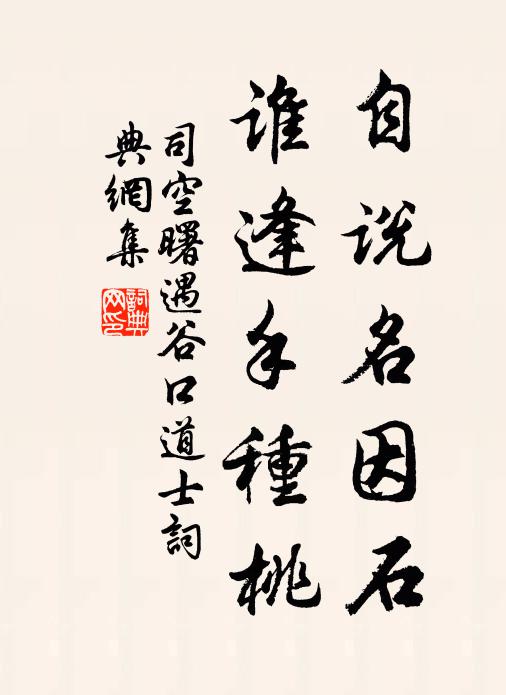 自説名因石
誰逢手種桃
司空曙遇谷口道士詞
典網集
詞典
网印